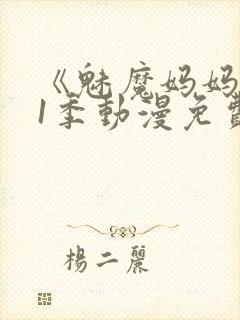 《魅魔妈妈
1季動漫免費
楊二麗